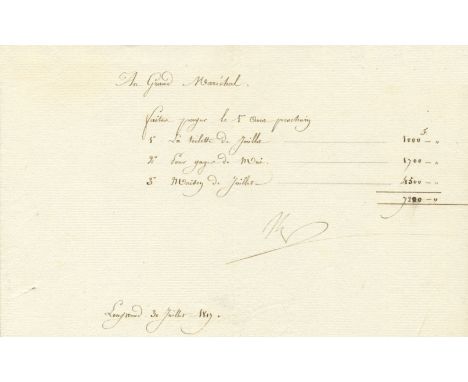 Au Grand Maréchal.
faites payer le 1er aout prochain
f.
1º La toilette de Juillet 1000 — "
2º Pour gages de Mai. 1700 — "
3º Maison de Juillet 4500 — "
7200 — "
N
Longwood 30 Juillet 1819.